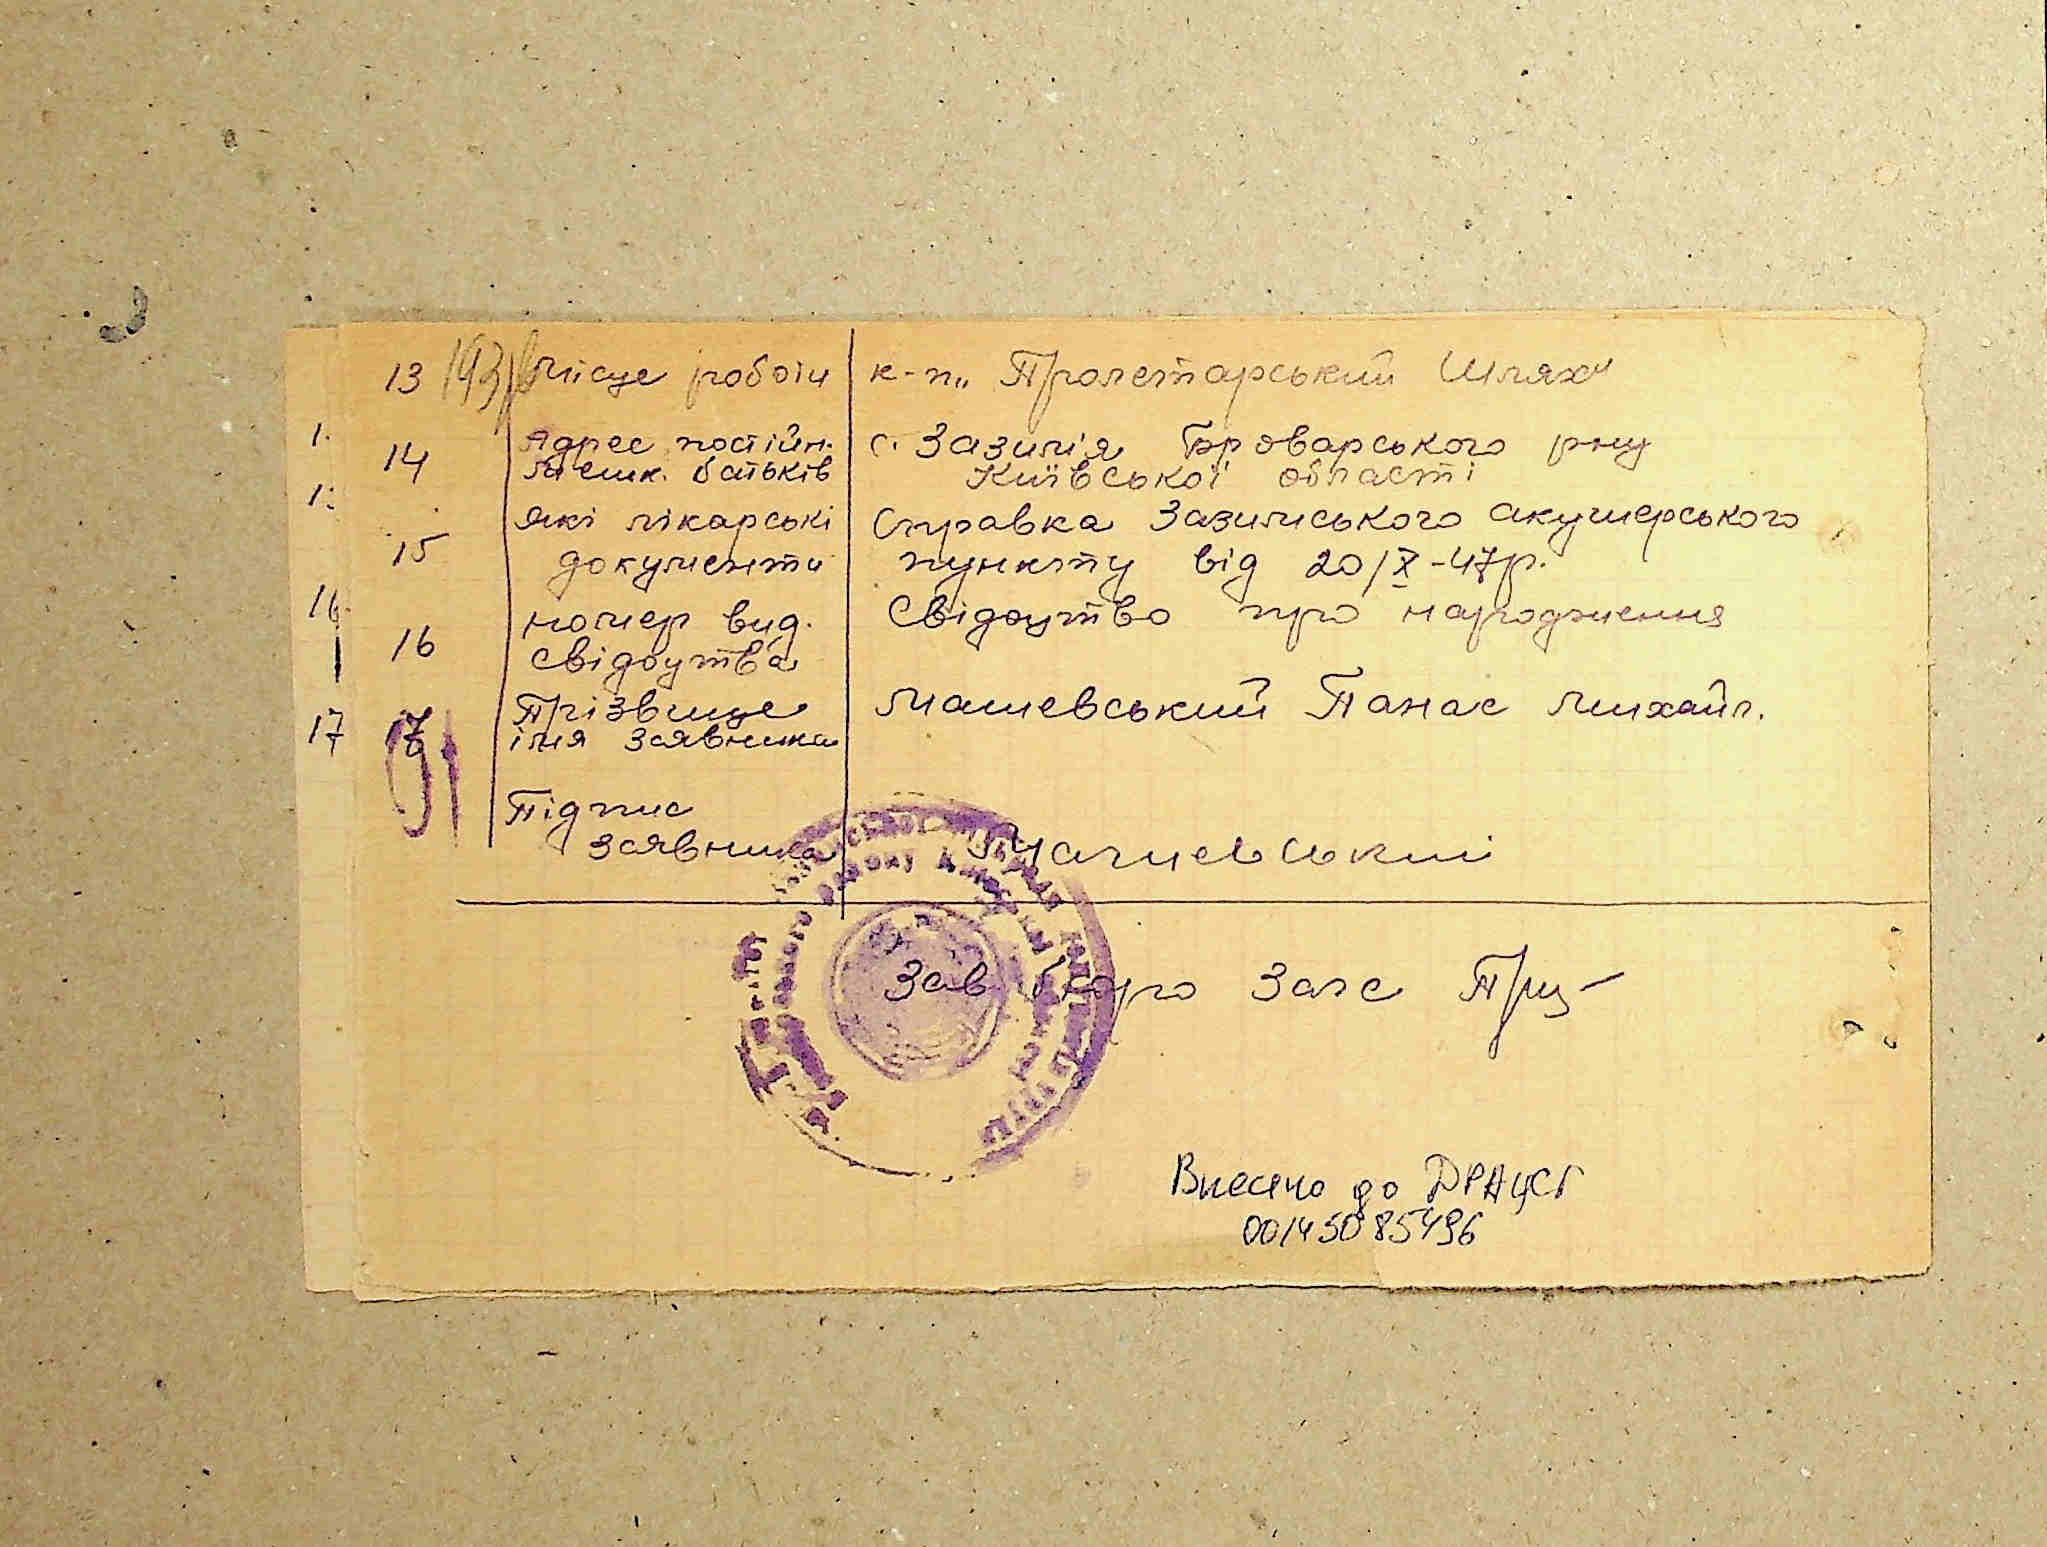 13 193 Місце роботи к-п „Пролетарський Шлях"
1. 14 Адрес постійн. с. Зазимʼя Броварського р-ну
мешк. батьків Київської області
1. 15 Які лікарські Справка Зазимського акушерського
документи пункту від 20/X-47р.
16 16 номер вид. Свідоутво про народження
свідоутва
17 17 Прізвище Машевський Панас Михайл.
імя заявника
91
Підпис
заявника Машевський
Зав бюро Загс
Внесено до ДРАЦСГ
00145085496